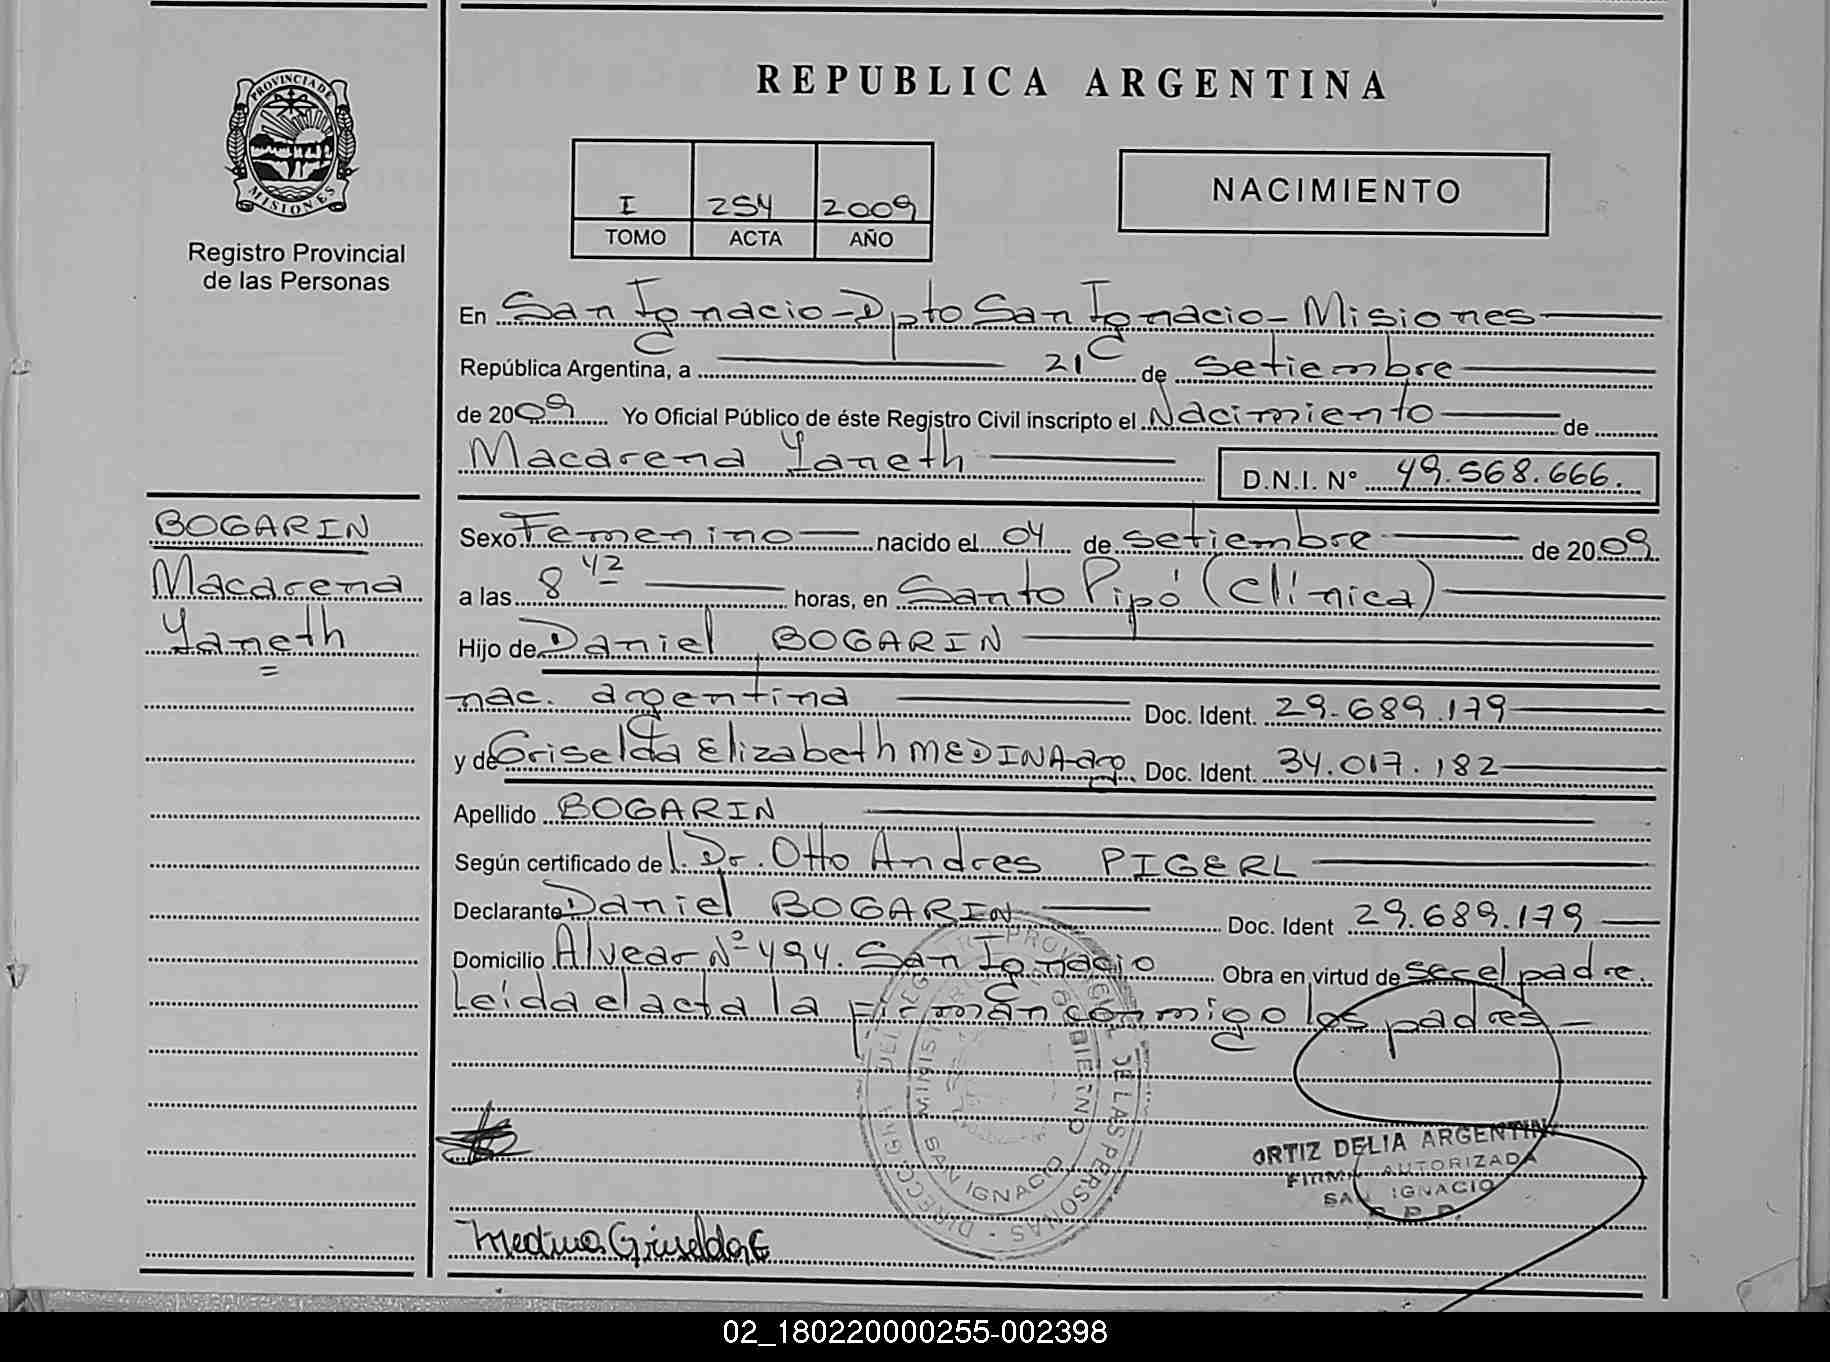 REPUBLICA ARGENTINA
PROVINCIA DE
MISIONES
Registro Provincial
de las Personas
I 254 2009
TOMO ACTA AÑO
NACIMIENTO
En San Ignacio - Dpto San Ignacio - Misiones
República Argentina, a 21 de setiembre
de 2009 Yo Oficial Público de éste Registro Civil inscripto el Nacimiento de
Macarena Yaneth
D.N.I. N° 49.568.666.
BOGARIN
Macarena
Yaneth
Sexo Femenino nacido el 04 de setiembre de 2009
a las 8 42 horas, en Santo Pipó (Clínica)
Hijo de Daniel BOGARIN
nac. argentina Doc. Ident. 29.689.179
y de Griselda Elizabeth MEDINA-arg. Doc. Ident. 34.017.182
Apellido BOGARIN
Según certificado de l. Dr. Otto Andres PIGERL
Declarante Daniel BOGARIN Doc. Ident 29.689.179
Domicilio Alvear Nº 494. San Ignacio Obra en virtud de ser el padre.
Leída el acta la firman conmigo los padres -
SAN IGNACIO
ORTIZ DELIA ARGENTIN
FIRMA AUTORIZADA
SAN IGNACIO
R. P. P.
Medina Griselda E
02_180220000255-002398